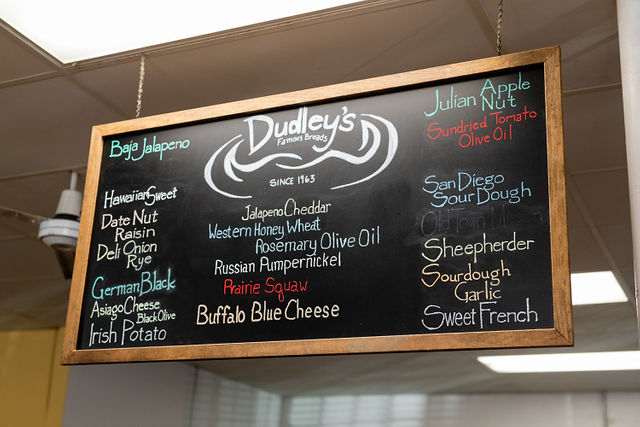 Dudley's
Famous Breads
SINCE 1963
Baja Jalapeno
Hawaiian Sweet
Date Nut
Raisin
Deli Onion
Rye
German Black
Asiago Cheese
Black Olive
Irish Potato
Jalapeno Cheddar
Western Honey Wheat
Rosemary Olive Oil
Russian Pumpernickel
Prairie Squaw
Buffalo Blue Cheese
Julian Apple
Nut
Sundried Tomato
Olive Oil
San Diego
Sour Dough
Old Town
Sheepherder
Sourdough
Garlic
Sweet French